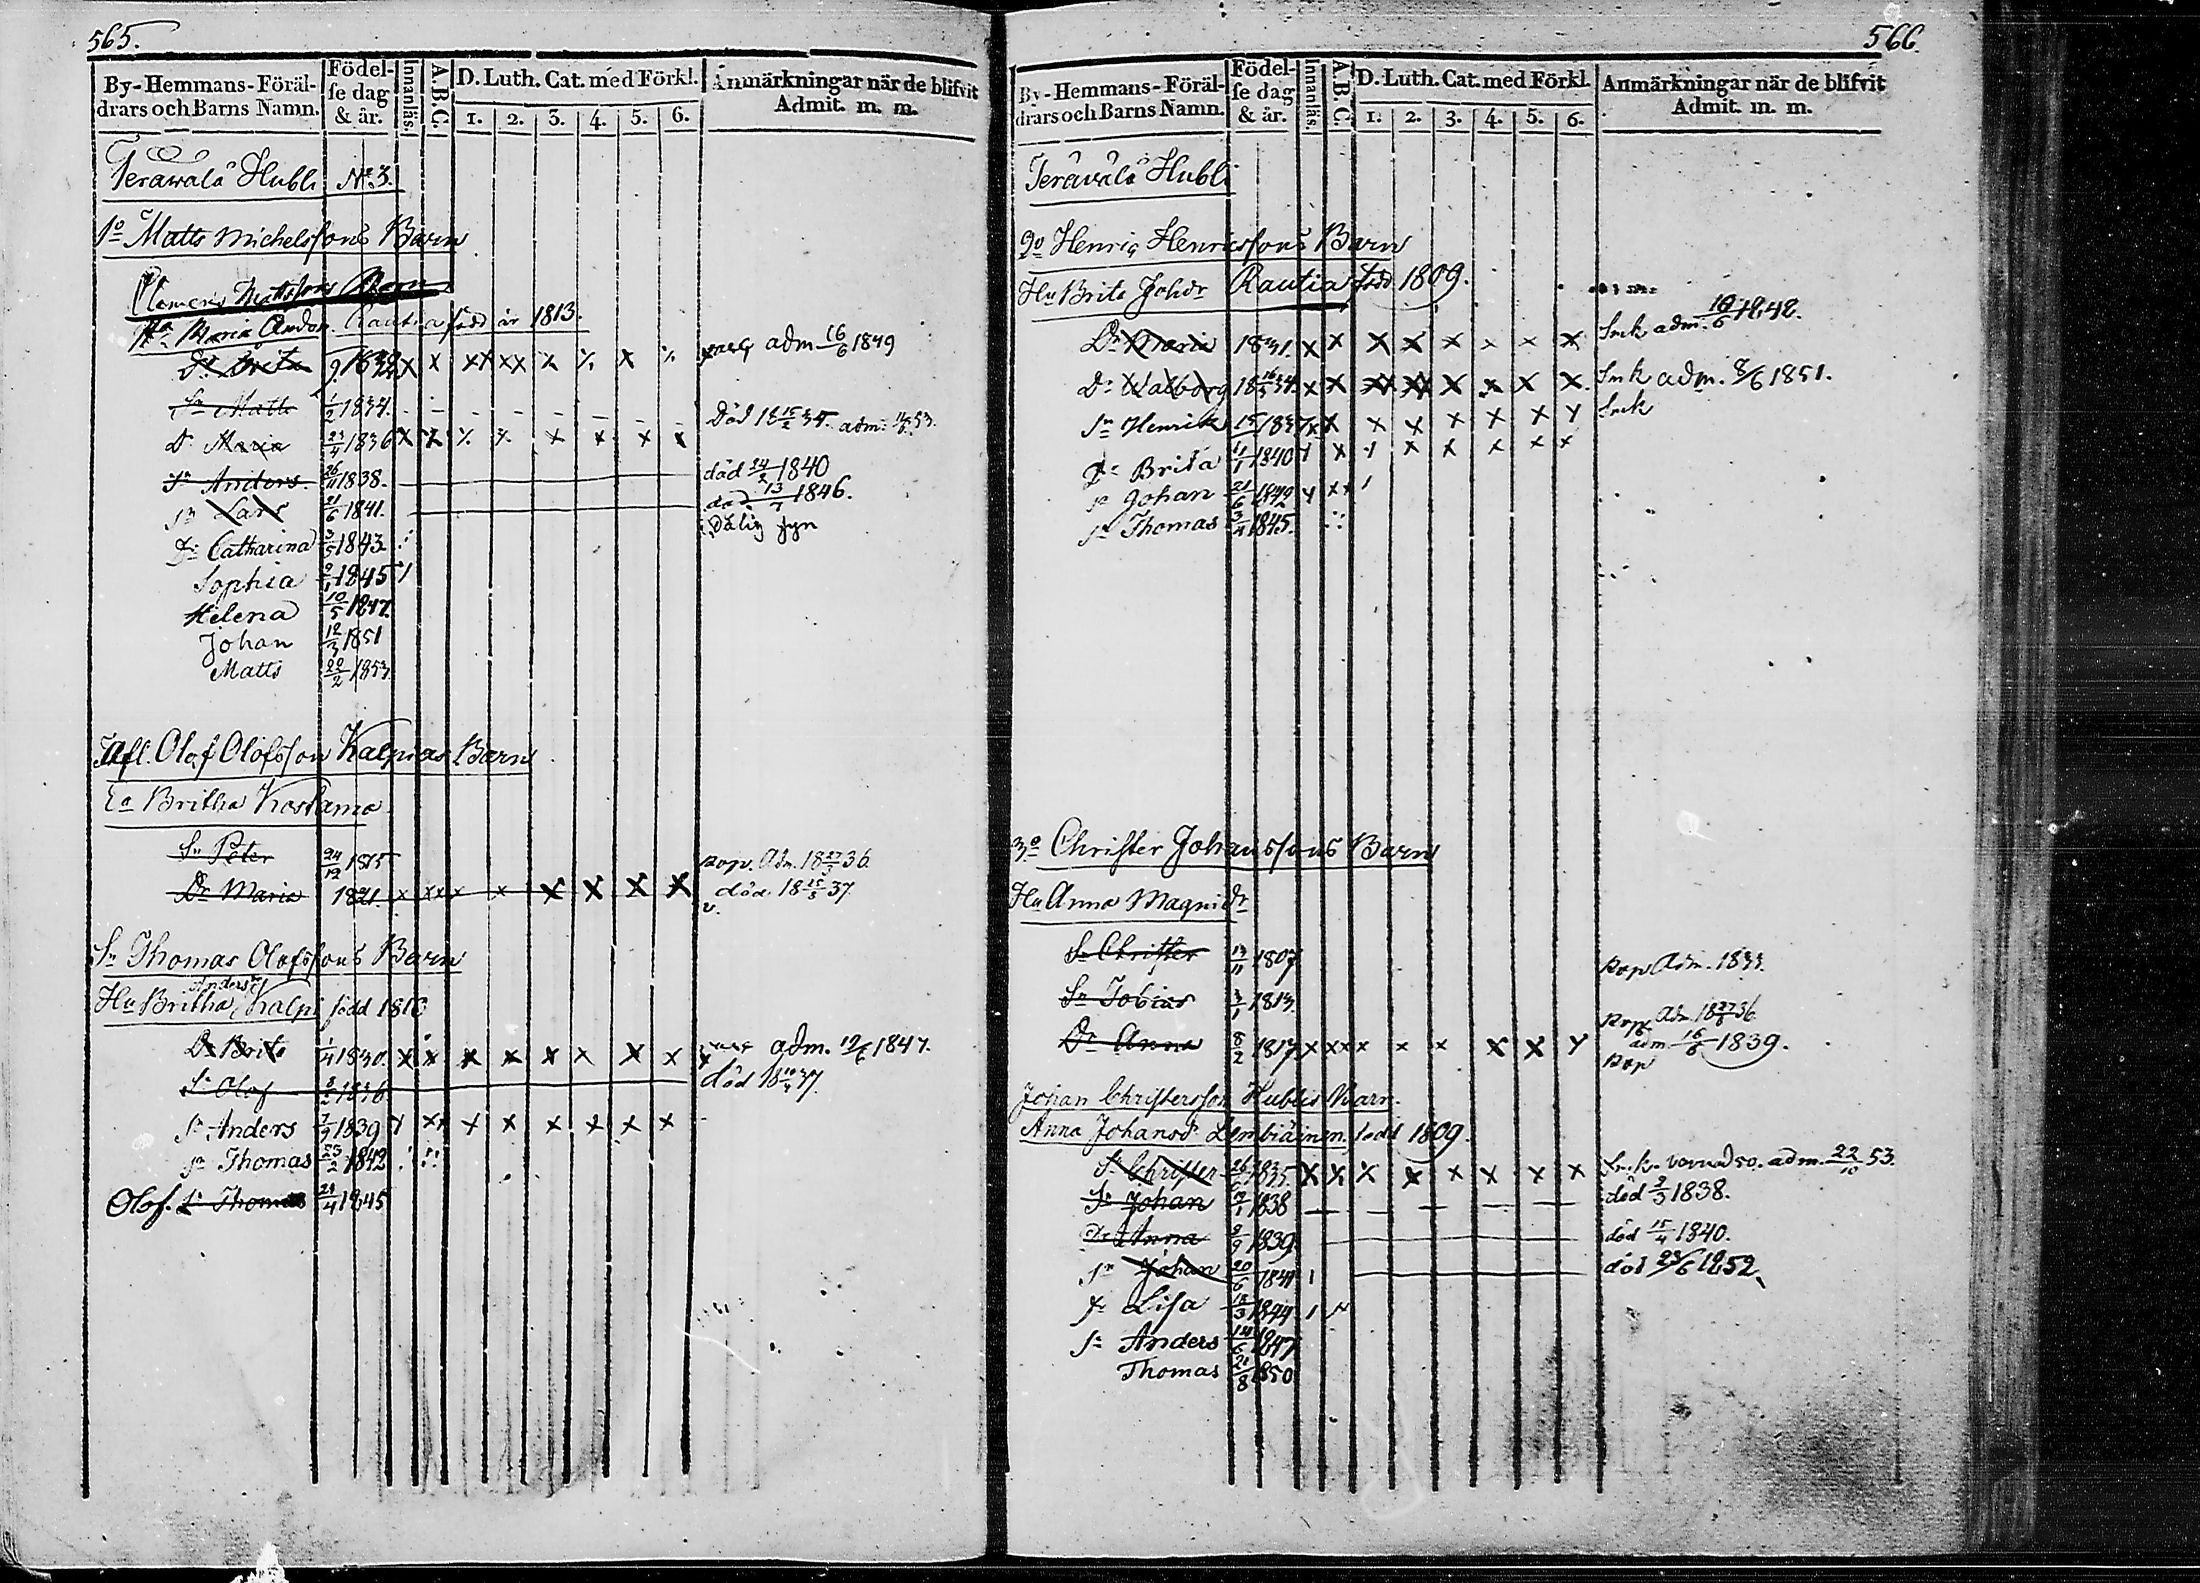 565.
By-Hemmans-Föräl-
drars och Barns Namn.
Födel-
se dag
& år.
Innanläs.
A.B.C.
D. Luth. Cat. med Förkl.
1. 2. 3. 4. 5. 6.
Anmärkningar när de blifvit
Admit. m. m.
Terawala Hubli No 3.
1o Matts Michelssons Barn
Clemens Mattssons Barn
Maria Rautia född år 1813.
Dr Brita adm 16/6 1849
Sn Matts 1/2 1834. Död 18 15/2 34.
Dr Maria 23/4 1836 X X adm. 53.
Sn Anders 26/11 1838. död 24/2 1840
Sn Lars 21/6 1841. död 13/7 1846.
Dr Catharina 3/5 1843 Dålig syn
Sophia 9/1 1845
Helena 10/5 1847.
Johan 12/3 1851
Matts 22/2 1853
Olof Olofsson Kalpias Barn
Ea Britha Kostamo
Sn Peter 24/12 1815 kop. Adm. 18 27/3 36.
Dr Maria 1821. x xx x x X X X X död 18 15/5 37.
Sn Thomas Olofssons Barn
Anders dr
Hu Britha Kalpi född 1810
Dr Brita 1/4 1830. adm. 19/6 1847.
Sn Olof 8/2 1836 död 18 37.
Sn Anders 7/9 1839
Sn Thomas 25/2 1842
Olof. Sn Thomas 29/4 1845
566.
By-Hemmans-Föräl-
drars och Barns Namn.
Födel-
se dag
& år.
Innanläs.
A.B.C.
D. Luth. Cat. med Förkl.
1. 2. 3. 4. 5. 6.
Anmärkningar när de blifvit
Admit. m. m.
Terawala Hubli
2o Henric Henricssons Barn
Hu Brita Johdr Rautia född 1809.
Dr Maria 1831. x x X X x x x X Smk adm.
Dr Walborg 18 16/3 34. Smk adm. 8/6 1851.
Sn Henrik 1837 Smk
Dr Brita 11/1 1840
Sn Johan 21/6 1842
Sn Thomas 3/4 1845.
3o Christer Johanssons Barn
Hu Anna Magnidr
Sn Christer 13/11 1807 kop Adm. 1833.
Sn Tobias 3/1 1813. kop. Adm. 18 27/3 36
Dr Anna 8/2 1817 x xx x x x X X Y adm 16/6 1839.
kop
Johan Christersson Hublis Barn.
Anna Johansdr Lembiäinen född 1809.
Sn Christer 26/6 1835. adm. 22/10 53.
Sn Johan 1838 död 2/3 1838.
Dr Anna 8/9 1839 död 15/4 1840.
Sn Johan 20/6 1841 död 23/6 1852.
Dr Lisa 18/3 1844
Sn Anders 14/6 1847
Thomas 21/8 1850